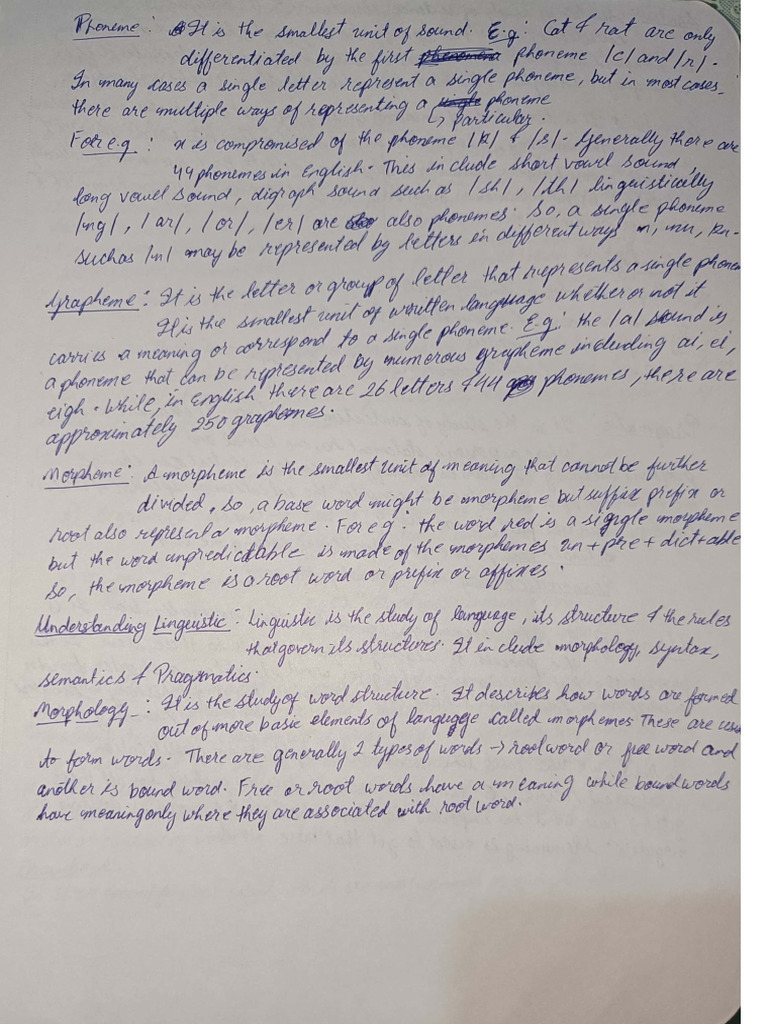 Phoneme : It is the smallest unit of sound. E.g: Cat & rat are only
differentiated by the first phoneme /c/ and /r/.
In many cases a single letter represent a single phoneme, but in most cases,
there are multiple ways of representing a phoneme
↳ particular.
For e.g : x is compromised of the phoneme /k/ & /s/. Generally there are
44 phonemes in English. This include short vowel sound,
long vowel sound, digraph sound such as /sh/, /th/ linguistically
/ng/, /ar/, /or/, /er/ are also phonemes. So, a single phoneme
such as /n/ may be represented by letters in different ways n, nn, kn.
Grapheme : It is the letter or group of letter that represents a single phonem
It is the smallest unit of written language whether or not it
carries a meaning or correspond to a single phoneme. E.g: the /a/ sound is
a phoneme that can be represented by numerous grapheme including ai, ei,
eigh. While, in English there are 26 letters & 44 phonemes, there are
approximately 250 graphemes.
Morpheme : A morpheme is the smallest unit of meaning that cannot be further
divided, so, a base word might be morpheme but suffix prefix or
root also represent a morpheme. For e.g. the word red is a single morpheme
but the word unpredictable is made of the morphemes un + pre + dict + able
So, the morpheme is a root word or prefix or affixes.
Understanding Linguistic : Linguistic is the study of language, its structure & the rules
that govern its structures. It include morphology, syntax,
semantics & Pragmatics.
Morphology : It is the study of word structure. It describes how words are formed
out of more basic elements of language called morphemes These are
to form words. There are generally 2 types of words → root word or free word and
another is bound word. Free or root words have a meaning while bound words
have meaning only where they are associated with root word.